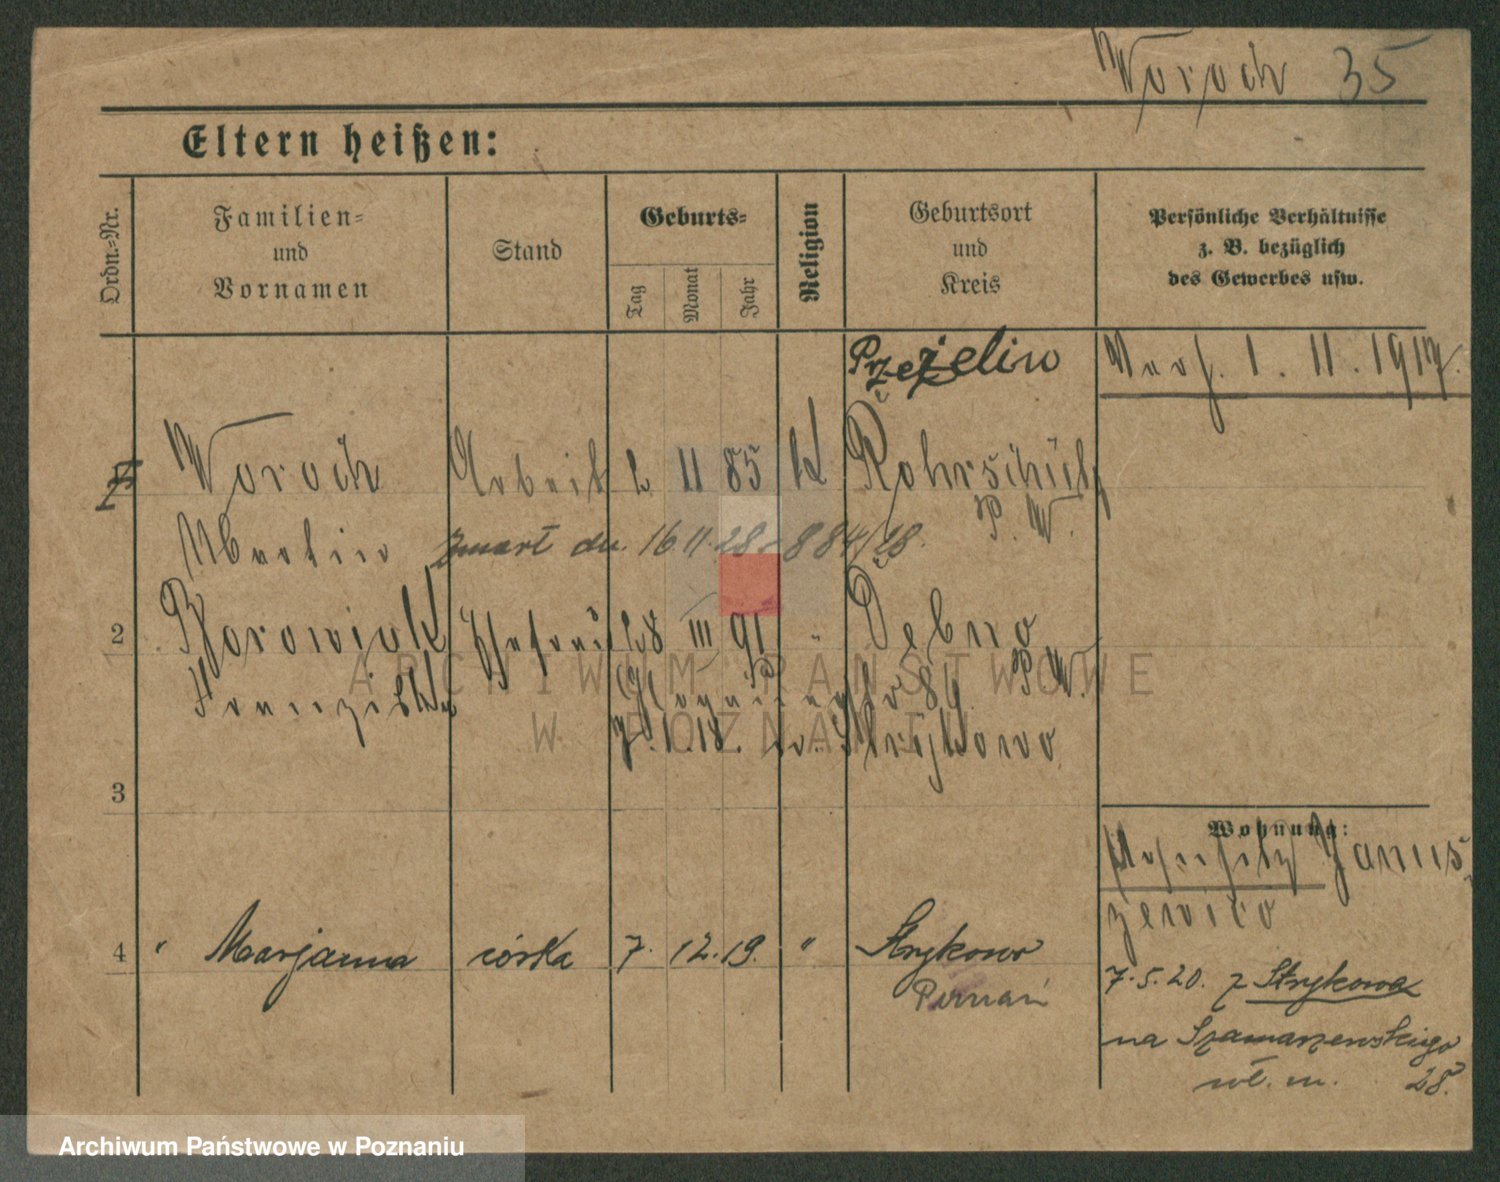 Woroch 35
Eltern heißen:
Ordn.=Nr.
Familien=
und
Vornamen
Stand
Geburts=
Tag
Monat
Jahr
Religion
Geburtsort
und
Kreis
Persönliche Verhältnisse
z. B. bezüglich
des Gewerbes usw.
1. 11. 1917.
Woroch Arbeit 2 11 85 k Rohrschütz
P. W.
zmarł dn. 16.11.28 884/28.
2 Borowiak 28 III 91 " Dębno
P. W.
Franziska
3
Wohnung:
Janus-
zewico
4 " Marjanna córka 7. 12. 19. " Strykowo
Poznań
7.5.20. z Strykowa
na Szamarzewskiego
wł. m. 28.
ARCHIWUM PAŃSTWOWE
W POZNANIU
Archiwum Państwowe w Poznaniu